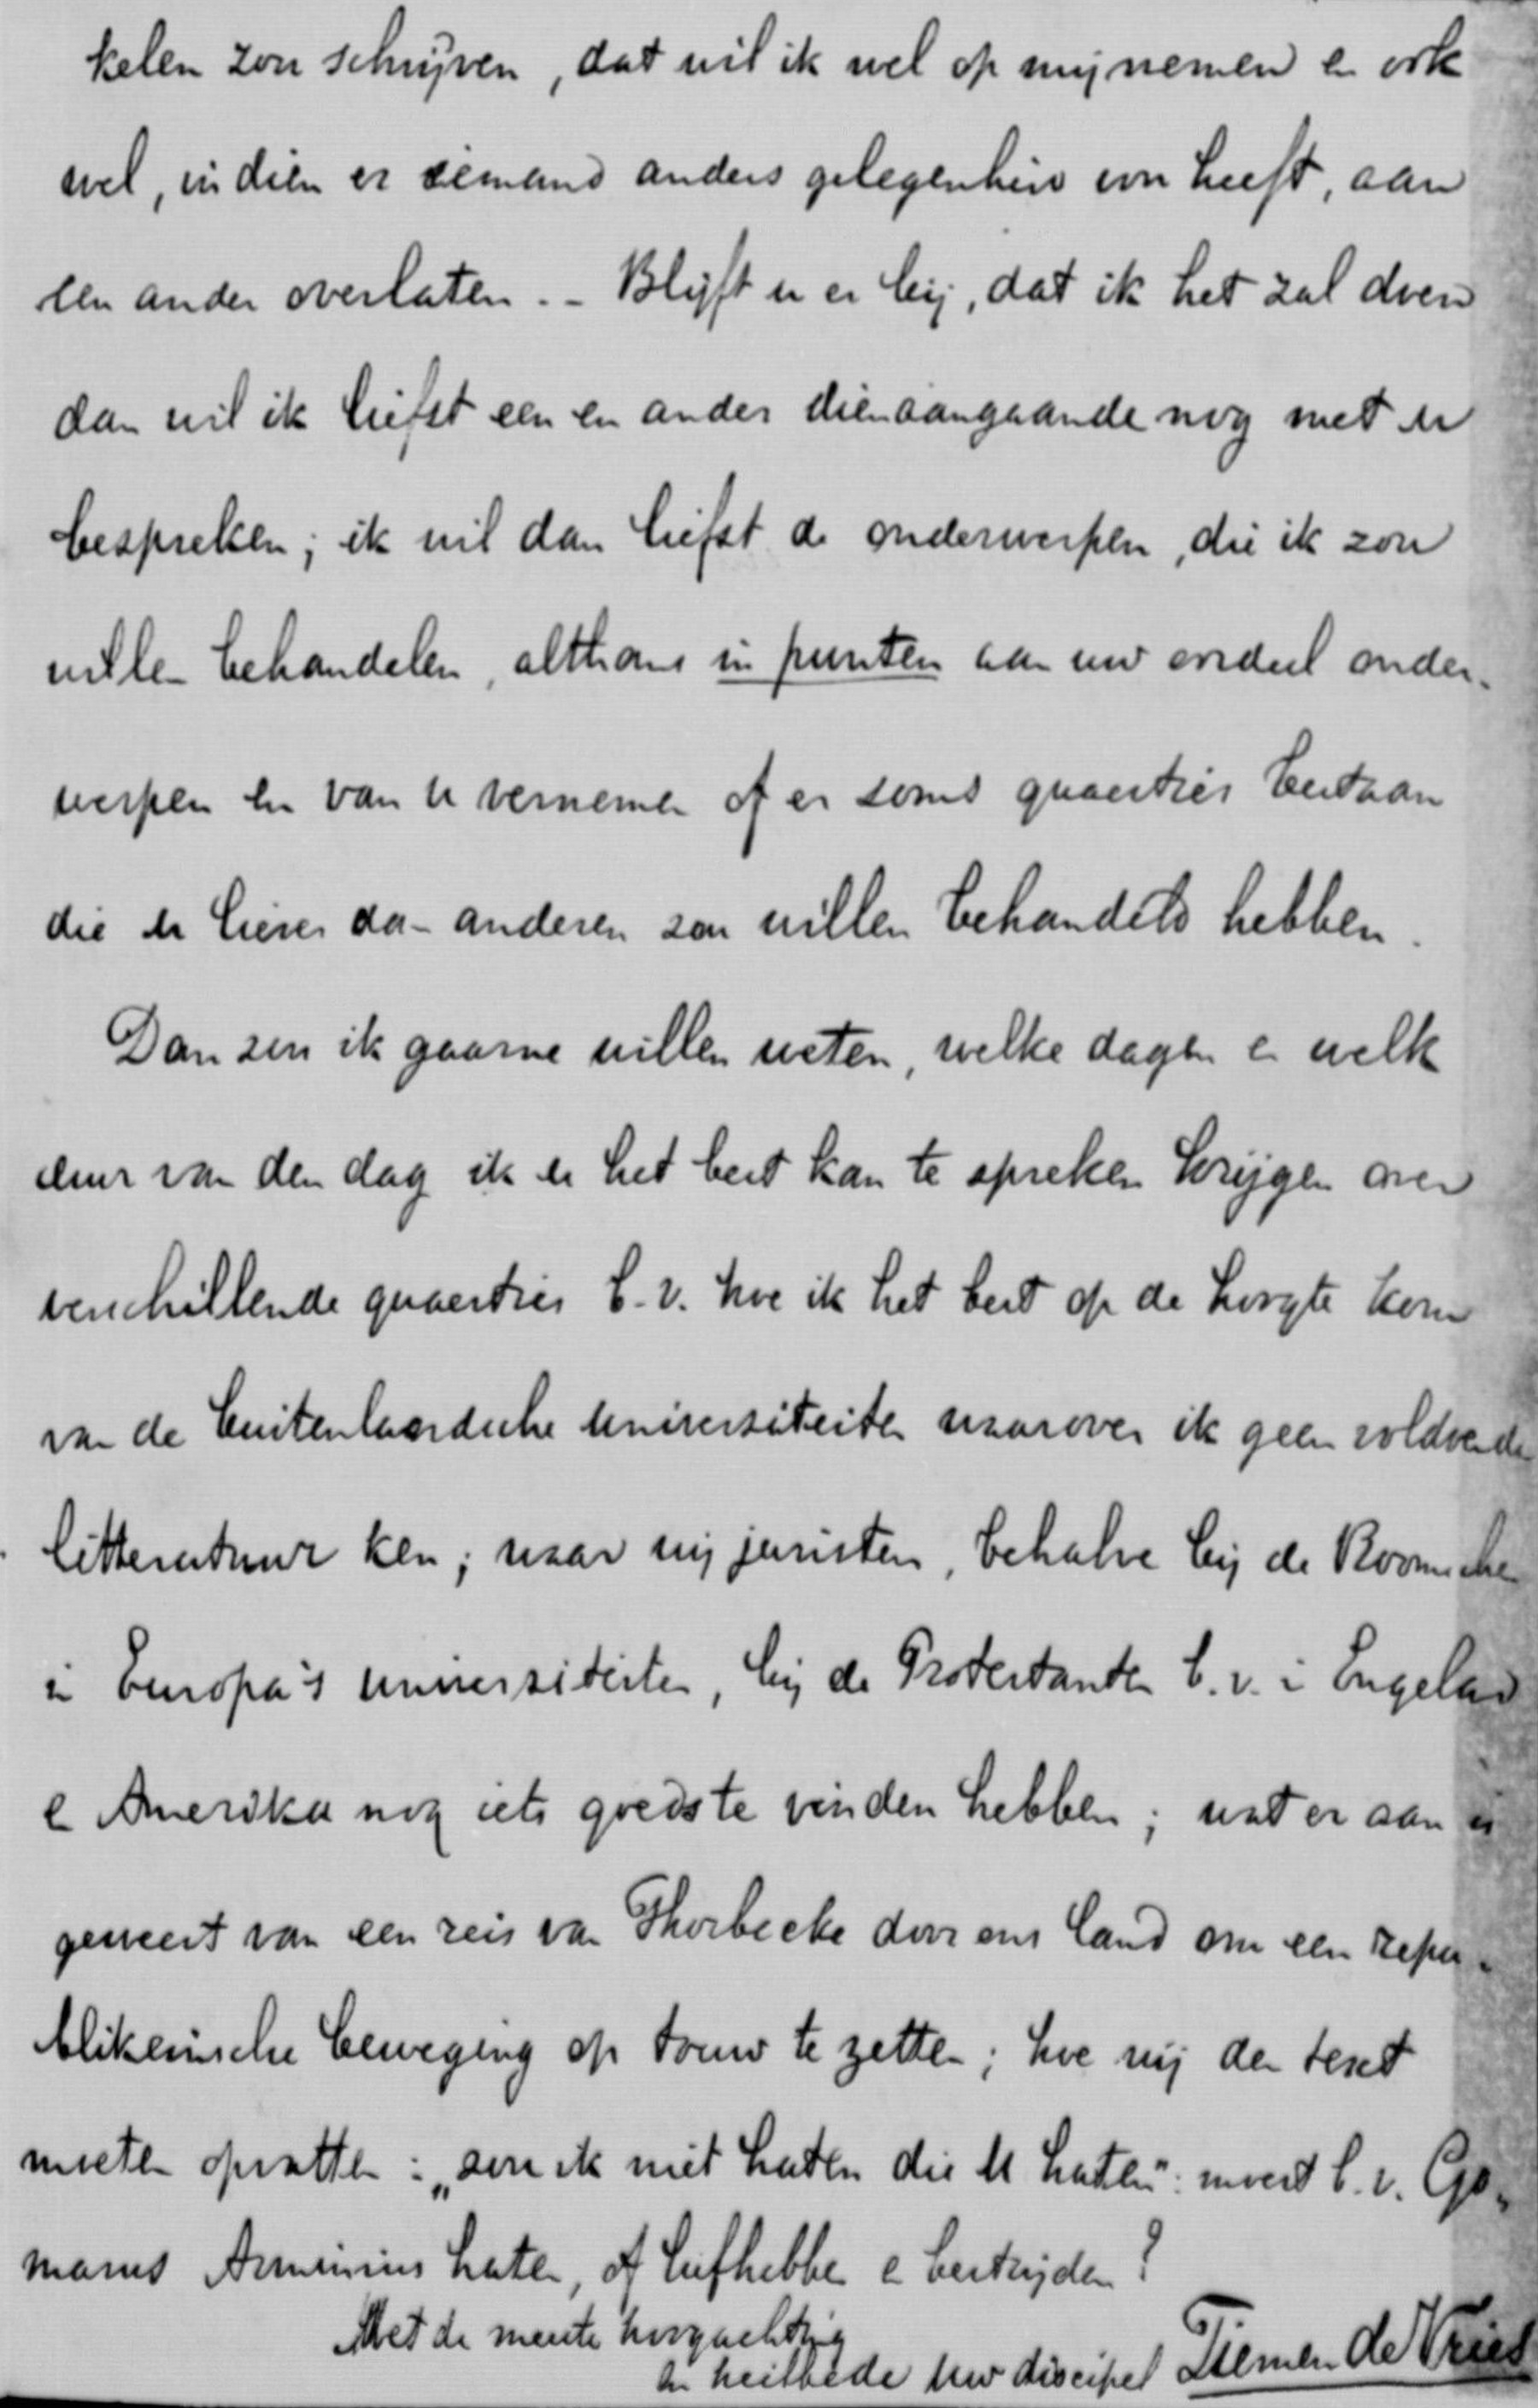 kelen zou schrijven, dat wil ik wel op mij nemen en ook
wel, indien er iemand anders gelegenheid voor heeft, aan
een ander overlaten. - Blijft u er bij, dat ik het zal doen
dan wil ik liefst een en ander dienaangaande nog met u
bespreken; ik wil dan liefst de onderwerpen, die ik zou
willen behandelen, althans in punten aan uw oordeel onder-
werpen en van u vernemen of er soms quaesties bestaan
die u liever dan anderen zou willen behandeld hebben.
Dan zou ik gaarne willen weten, welke dagen en welk
uur van den dag ik u het best kan te spreken krijgen over
verschillende quaesties b.v. hoe ik het best op de hoogte kom
van de buitenlandsche universiteiten waarover ik geen voldoende
litteratuur ken; waar wij juristen, behalve bij de Roomsche
in Europa's universiteiten, bij de Protestanten b.v. in Engeland
en Amerika nog iets goeds te vinden hebben; wat er aan is
geweest van een reis van Thorbecke door ons land om een repu-
blikeinsche beweging op touw te zetten; hoe wij den tekst
moeten opvatten: „zou ik niet haten die U haten": moest b.v. Go-
marus Arminius haten, of liefhebben en bestrijden?
Met de meeste hoogachting
en heilbede Uw discipel Tiemen de Vries